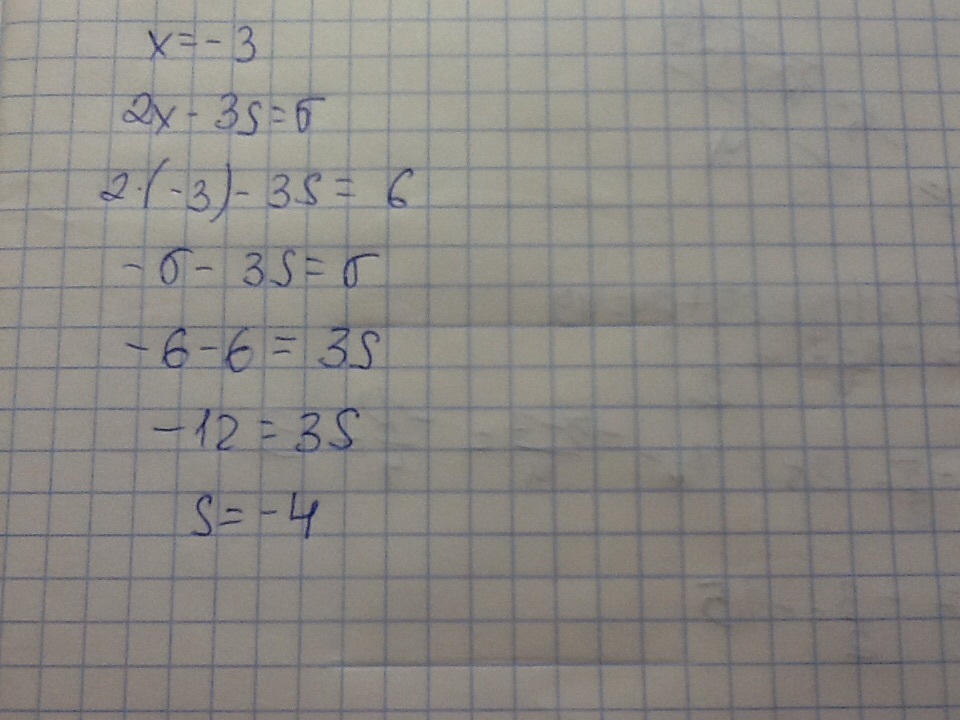 x=-3
2x-3s=6
2·(-3)-3s=6
-6-3s=6
-6-6=3s
-12=3s
s=-4